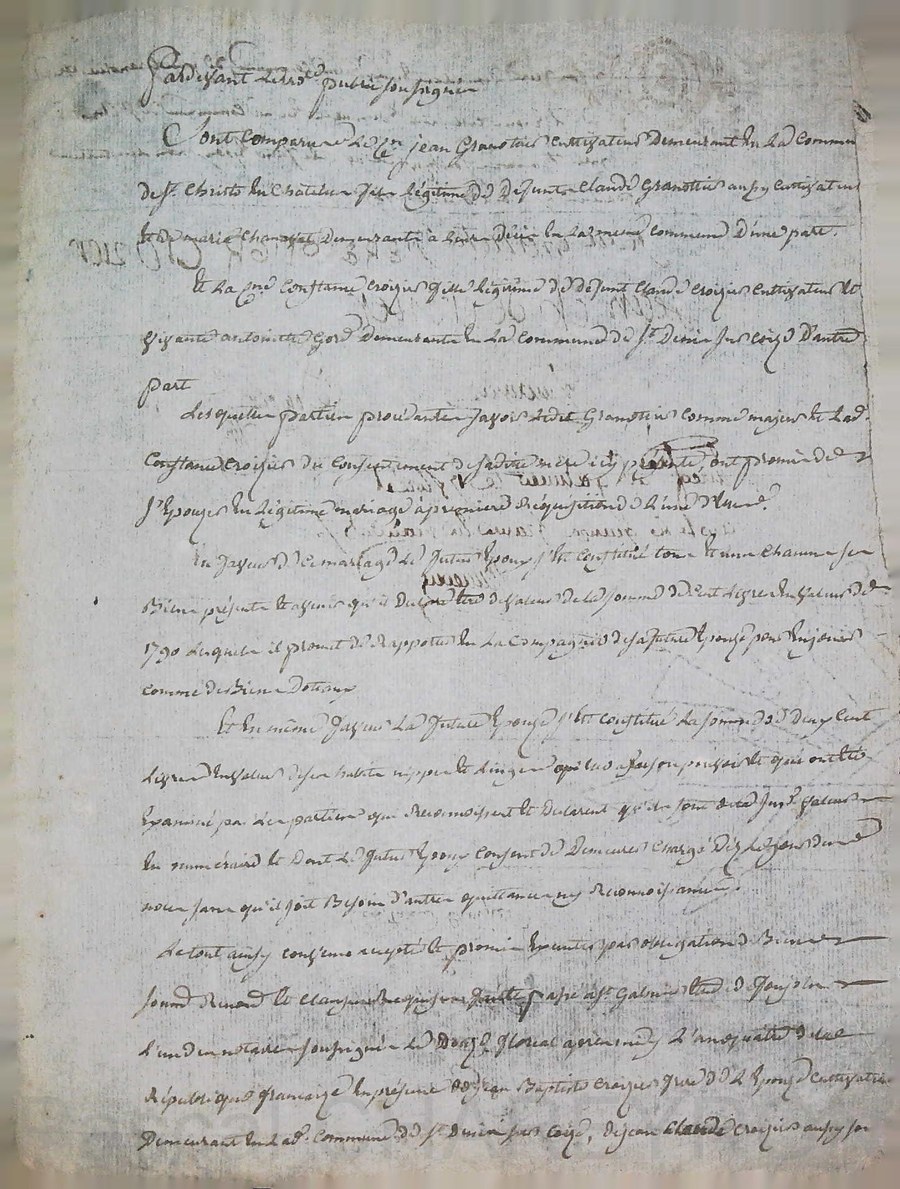 Pardevant les no.res publics soussignés
Sont comparus le C.en jean Granottier cultivateur Demeurant en La Commune
de St. Christo en Chatelus fils légitime de Defunt Claude Granottier aussy cultivateur
et de marie Chanavat Demeurante à Leur Decin en La meme commune D'une part.
Et La C.ne Constance Croizier fille Légitime de defunt Claude Croizier cultivateur et
vivante antoinette Gord Demeurante en La Commune de St. Denis sur Coize D'autre
part
Lesquelles parties procédantes sçavoir Ledit Granottier comme majeur et Lad.
Constance Croizier du Consentement de sadite mère icy presente, ont promis de
s'Epouzer en Légitime mariage à première Réquisition de L'une D'elles.
En faveur de ce mariage Le futur Epoux s'est constitué tous et uns Chacuns ses
Biens présents et avenir qu'il Declare être de valeur de la somme de Cent Livres en valeur de
1790 Lesquels il promet de Rapporter en La Compagnie de sa future Epouze pour en jouir
comme de Biens Dotaux
Et en même faveur La future Epouze s'est constitué La somme de Deux Cent
Livres en valeur de ses habits nippes et Linges qui lui a son pouvoir et qui ont été
Examiné par Les parties qui Reconnoissent et Declarent qu'ils sont de la susd. valeur
En numéraire et Dont Le futur Epoux Consent de Demeurer chargé Dès Le jour de
noces sans qu'il soit Besoin D'autre quittance ny Reconnoissance.
Le tout ainsy convenu accepté et promis Executer par obligation de Biens
soumis Renoncé et Clauses Requises fait & passé à St. Galmier Etude de Ponjolin
L'un des notaires soussignés Le Douze floreal après midy L'an quatre de la
République française En présence de Jean Baptiste Croizier frere de L'Epouze Cultivateur
Demeurant en Lad. Commune de St. Denis sur Coize, de jean Claude Croizier aussy son